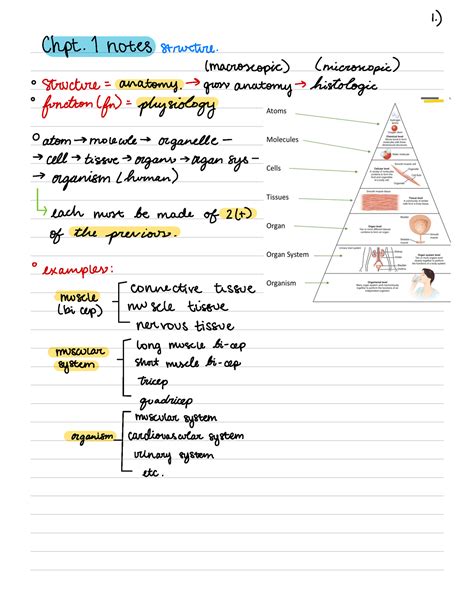 1.)
Chpt. 1 notes structure.
(macroscopic) (microscopic)
° Structure = anatomy. → gross anatomy → histologic
° function (fn) = physiology
° atom → molecule → organelle –
→ cell → tissue → organ → organ sys –
→ organism (human)
↳ each must be made of 2(+)
of the previous.
Atoms
Molecules
Cells
Tissues
Organ
Organ System
Organism
Chemical level
Cellular level
Tissue level
Organ level
Organ system level
Organismal level
° examples:
muscle
(bi cep)
connective tissue
muscle tissue
nervous tissue
muscular
system
long muscle bi-cep
short muscle bi-cep
tricep
quadricep
organism
muscular system
cardiovascular system
urinary system
etc.